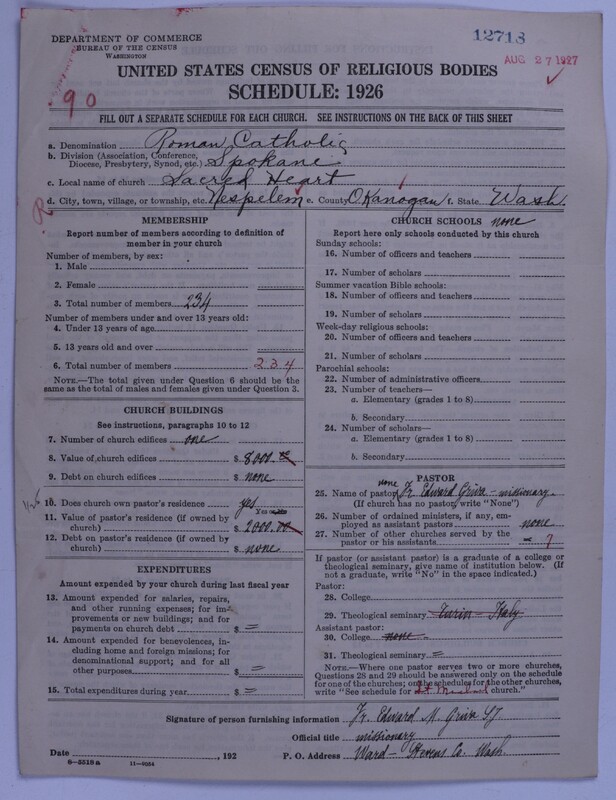 DEPARTMENT OF COMMERCE
BUREAU OF THE CENSUS
WASHINGTON
12718
AUG 27 1927
UNITED STATES CENSUS OF RELIGIOUS BODIES
SCHEDULE: 1926
90
FILL OUT A SEPARATE SCHEDULE FOR EACH CHURCH. SEE INSTRUCTIONS ON THE BACK OF THIS SHEET
a. Denomination Roman Catholic
b. Division (Association, Conference, Diocese, Presbytery, Synod, etc.) Spokane
c. Local name of church Sacred Heart
d. City, town, village, or township, etc. Nespelem e. County Okanogan f. State Wash.
MEMBERSHIP
Report number of members according to definition of
member in your church
Number of members, by sex:
1. Male
2. Female
3. Total number of members 234
Number of members under and over 13 years old:
4. Under 13 years of age
5. 13 years old and over
6. Total number of members 234
NOTE.—The total given under Question 6 should be
same as the total of males and females given under Question 3.
CHURCH BUILDINGS
See instructions, paragraphs 10 to 12
7. Number of church edifices one
8. Value of church edifices $ 8000.00
9. Debt on church edifices $ none
10. Does church own pastor's residence yes
Yes or No
11. Value of pastor's residence (if owned by
church) $ 2000.00
12. Debt on pastor's residence (if owned by
church) $ none
EXPENDITURES
Amount expended by your church during last fiscal year
13. Amount expended for salaries, repairs,
and other running expenses; for im-
provements or new buildings; and for
payments on church debt $ =
14. Amount expended for benevolences, in-
cluding home and foreign missions; for
denominational support; and for all
other purposes $ =
15. Total expenditures during year $ =
CHURCH SCHOOLS none
Report here only schools conducted by this church
Sunday schools:
16. Number of officers and teachers
17. Number of scholars
Summer vacation Bible schools:
18. Number of officers and teachers
19. Number of scholars
Week-day religious schools:
20. Number of officers and teachers
21. Number of scholars
Parochial schools:
22. Number of administrative officers
23. Number of teachers—
a. Elementary (grades 1 to 8)
b. Secondary
24. Number of scholars—
a. Elementary (grades 1 to 8)
b. Secondary
PASTOR
none
25. Name of pastor Fr. Edward Griva - missionary.
(If church has no pastor, write "None")
26. Number of ordained ministers, if any, em-
ployed as assistant pastors none
27. Number of other churches served by the
pastor or his assistants 7
If pastor (or assistant pastor) is a graduate of a college or
theological seminary, give name of institution below. (If
not a graduate, write "No" in the space indicated.)
Pastor:
28. College
29. Theological seminary Turin - Italy
Assistant pastor:
30. College none
31. Theological seminary =
NOTE.—Where one pastor serves two or more churches,
Questions 28 and 29 should be answered only on the schedule
for one of the churches; on the schedules for the other churches,
write "See schedule for St. Michael church."
Signature of person furnishing information Fr. Edward M. Griva SJ
Official title missionary
Date , 192 P. O. Address Ward - Stevens Co. Wash.
8-3518 a 11-9054